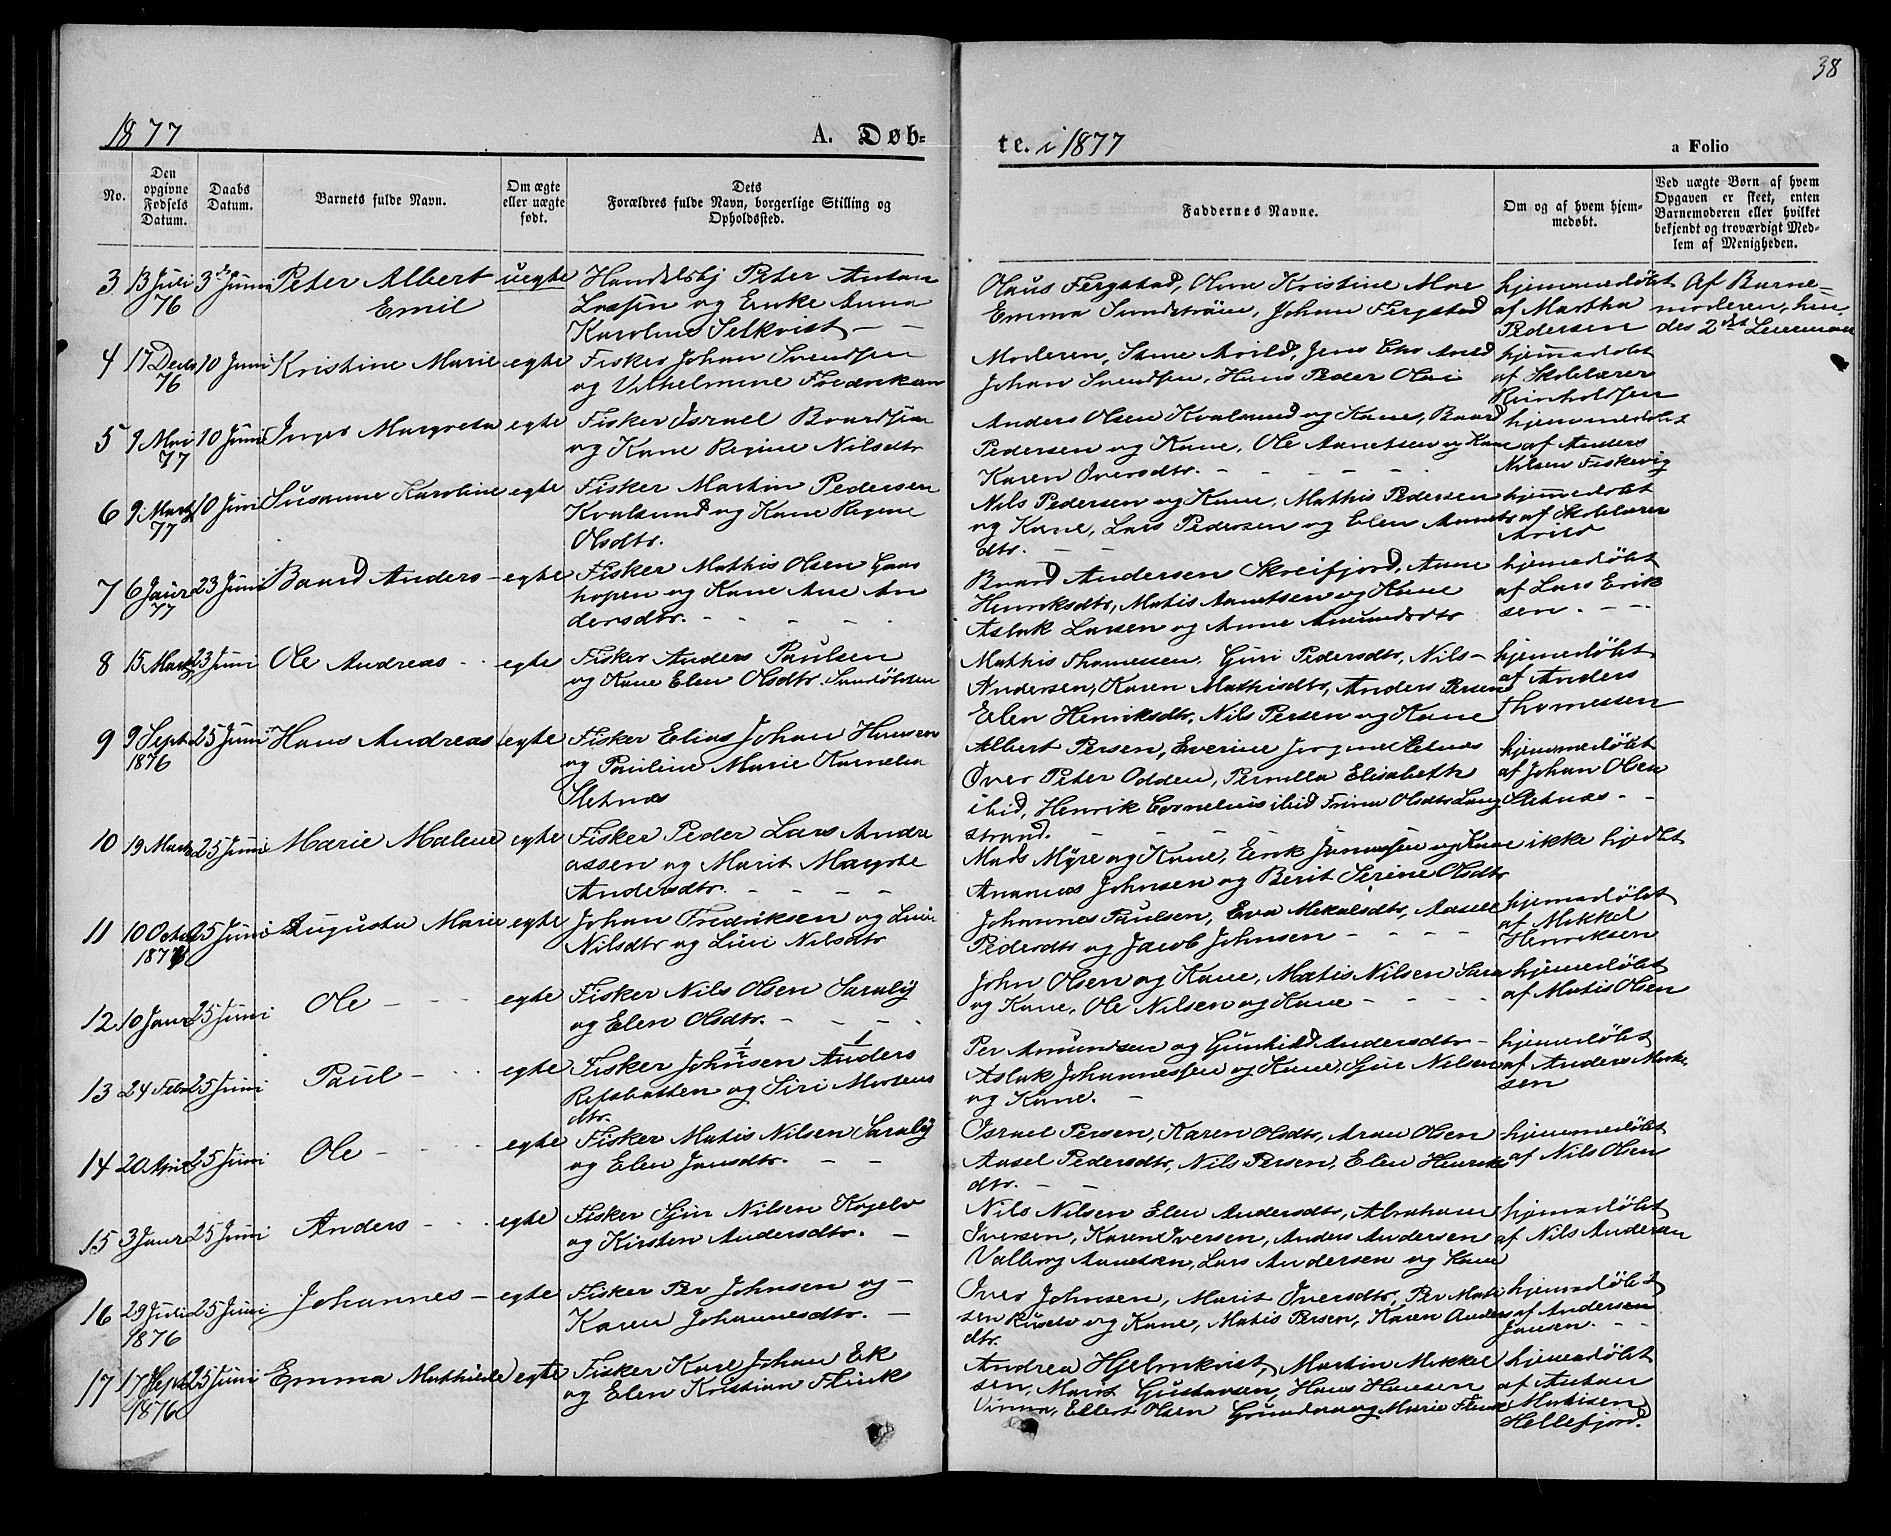 38
1877
A. Døb-
te. i 1877
a Folio
No.
Den
opgivne
Fødsels
Datum.
Daabs
Datum.
Barnets fulde Navn.
Om ægte
eller uægte
født.
Dets
Forældres fulde Navn, borgerlige Stilling og
Opholdssted.
Faddernes Navne.
Om og af hvem hjem-
medøbt.
Ved uægte Børn af hvem
Opgaven er skeet, enten
Barnemoderen eller hvilket
bekjendt og troværdigt Med-
lem af Menigheden.
3 13 Juli 76 3die Juni Peter Albert
Emil
uegte
Handelsbj Peter Anton
og Anna
Karoline Selkvist
Olaus Fergstad, Oline Kristine Moe
Emma Sundstrøm, Johan Fergstad
hjemmedøbt
af Martha
Pedersen
Af Barne-
moderen, hen-
des 2det
4 17 Decbr 76 10 Juni Kristine Marie egte
Fisker Johan Svendsen
og Vilhelmine Fredriksen
Moderen, Arild, Jens Chr Arild
Johan Svendsen, Hans Peder Olai
hjemmedøbt
af Skolelærer
Reinholdsen
5 9 Mai 77 10 Juni Inger Margreta egte
Fisker Israel Baardsen
og Kone Regine Nilsdtr
Anders Olsen Kvalsund og Kone, Baard
Pedersen og Kone, Ole Aanetsen og Kone
Karen Iversdtr.
hjemmedøbt
af Anders
Nilsen Fiskevig
6 9 Marts 77 10 Juni Susanne Karoline egte
Fisker Martin Pedersen
Kvalsund og Kone Regine
Olsdtr.
Nils Pedersen og Kone, Mathis Pedersen
og Kone, Lars Pedersen og Elen
dtr.
hjemmedøbt
af Skolelærer
Arild
7 6 Janr 77 23 Juni Baard Anders egte
Fisker Mathis Olsen Gaas
hopen og Kone Ane An
dersdtr.
Baard Andersen Skreifjord, Anne
Henriksdtr, Matis Aanetsen og Kone
Aslak Larsen og Anne Amundsdtr
hjemmedøbt
af Lars Erik
sen.
8 15 Marts 23 Juni Ole Andreas egte
Fisker Anders Paulsen
og Kone Elen Olsdtr.
Mathis Thomessen, Guri Pedersdtr, Nils
Andersen, Karen Mathisdtr, Anders Persen
Elen Henriksdtr, Nils Persen og Kone
hjemedøbt
af Anders
Thomessen
9 9 Sept 1876 25 Juni Hans Andreas egte
Fisker Elias Johan Hansen
og Pauline Marie Kornelia
Sletnæs
Albert Persen, Everine Jorgine Sletnæs
Iver Peter Odden, Pernilla Elisabeth
ibid, Henrik Cornelius ibid Trine Olsdtr Lang
strand.
hjemmedøbt
af Johan Olsen
Sletnæs
10 19 Marts 25 Juni Marie Malene egte
Fisker Peder Lars Andre
assen og Marit Magrete
Andersdtr.
Mads Myre og Kone, Erik og Kone
Ananias Johnsen og Berit Serine Olsdtr
ikke hjdbt
11 10 Octbr 1876 25 Juni Augusta Marie egte
Johan Fredriksen og
Nilsdtr og Nilsdtr
Johannes Paulsen, Eva Mikalsdtr,
Pedersdtr og Jacob Johnsen
hjemedøbt
af Mikkel
Henriksen
12 10 Janr 25 Juni Ole egte
Fisker Nils Olsen Saraby
og Elen Olsdtr.
John Olsen og Kone, Matis Nilsen Sara
og Kone, Ole Nilsen og Kone
hjemedøbt
af Matis Olsen
13 24 Febr 25 Juni Paul egte
Fisker Johnsen Anders
Refsbotten og Siri Mortens
dtr.
Per Amundsen og Gunhild Andersdtr
Aslak Johannessen og Kone, Nilsen
og Kone.
hjemedøbt
af Anders
sen
14 20 April 25 Juni Ole egte
Fisker Matis Nilsen Saraby
og Elen Jonsdtr.
Israel Persen, Karen Olsdtr, Olsen
Pedersdtr, Nils Persen, Elen Henriks
dtr.
hjemmedøbt
af Nils Olsen
15 3 Janr 25 Juni Anders egte
Fisker Nilsen
og Kirsten Andersdtr.
Nils Nilsen Elen Andersdtr, Abraham
Iversen, Karen Iversen, Anders Andersen
Valborg Aanetsen, Lars Andersen og Kone
hjemedøbt
af Nils Andersen
16 29 Juli 1876 25 Juni Johannes egte
Fisker Per Johnsen og
Karen Johannesdtr.
Iver Johnsen, Marit Iversdtr, Per
sen og Kone, Matis Persen, Karen Anders
dtr.
hjemedøbt
af Andersen
Jansen.
17 17 Sept 1876 25 Juni Emma Mathilde egte
Fisker Karl Johan Ek
og Elen Kristian Flink
Andrea Hjelmkvist, Martin Mikkel
sen, Marit Gustavsen, Hans Hansen
Ellert Olsen og Marie Flink
hjemedøbt
af Anton
Mathisen
Hellefjord.